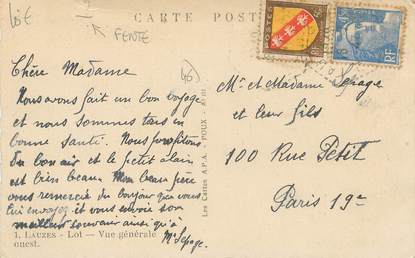 LOT
FENTE
CARTE POST
46
Chère Madame
Nous avons fait un bon voyage
et nous sommes tous en
bonne santé. Nous profitons
du bon air et le petit alain
est bien beau. Mon beau père
vous remercie du bonjour que vous
lui envoyez et vous envoie son
meilleur souvenir ainsi qu'à
Mr Lepage.
1. LAUZES - Lot - Vue générale
ouest.
Les Cartes A.P.A. POUX
Mr et Madame Lepage
et leur fils
100 Rue Petit
Paris 19e
POSTES
RF
RF